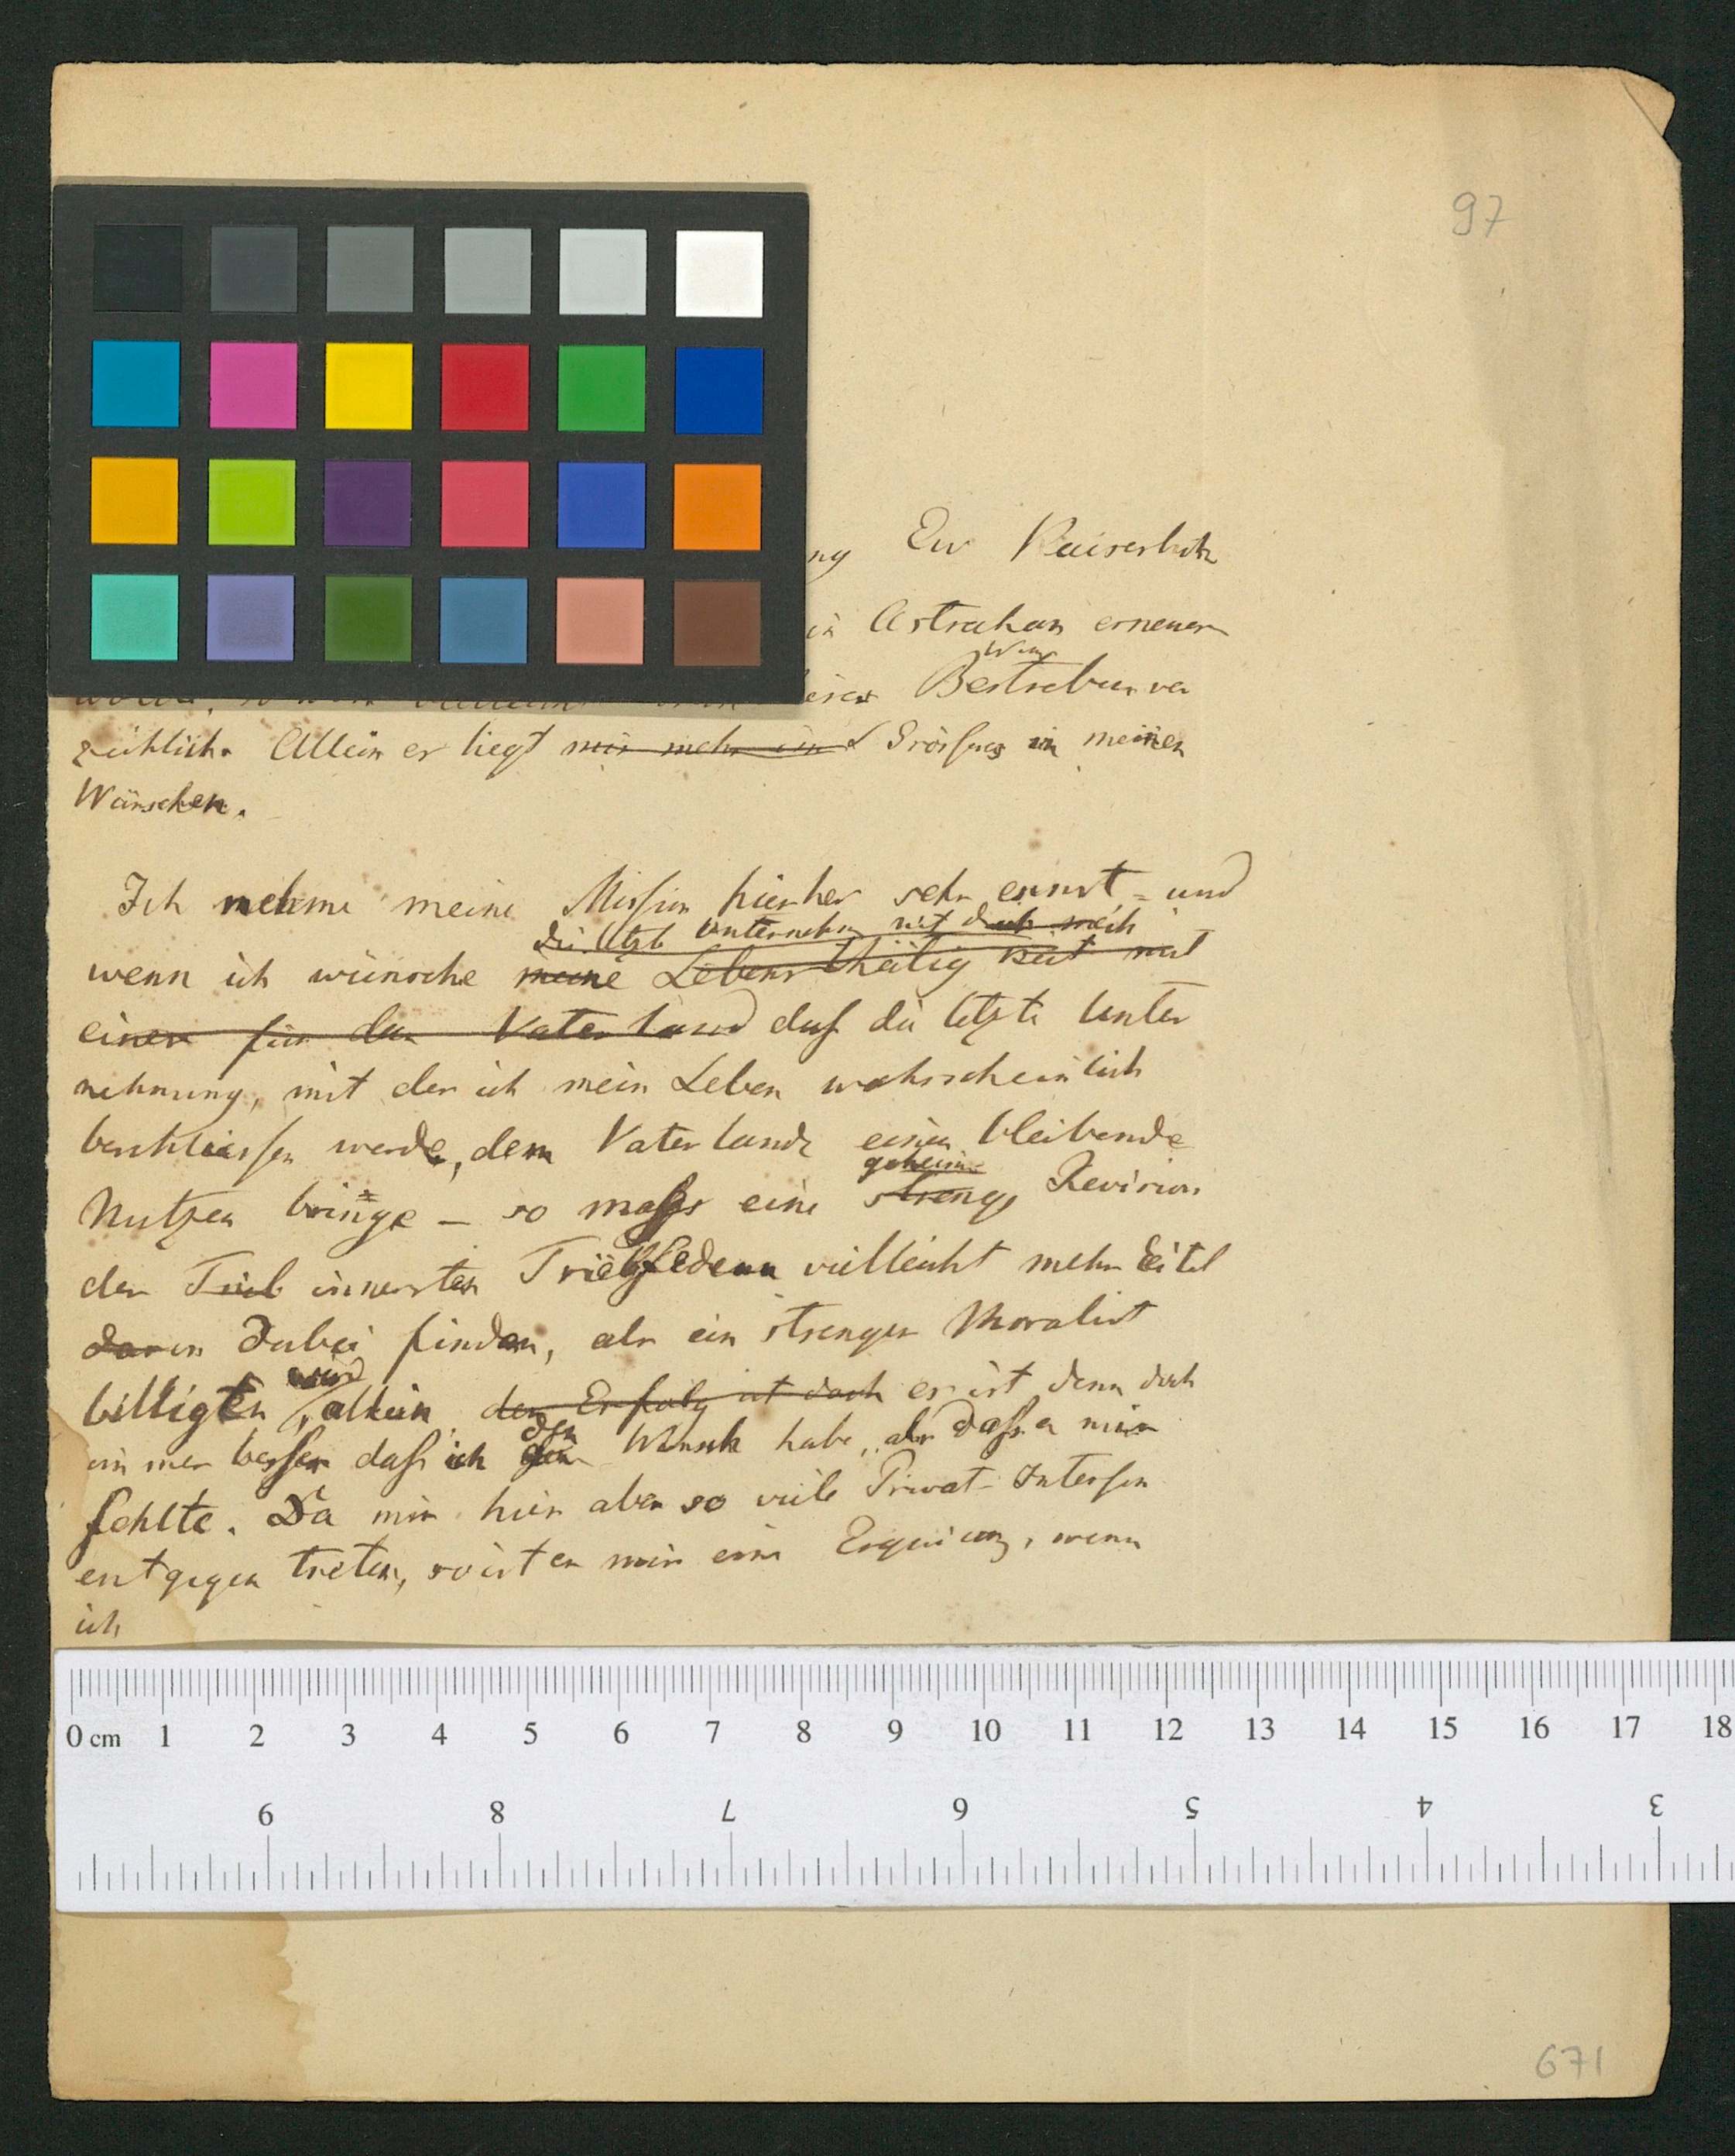 97
Ew Kaiserliche
in Astrakan erneuern
Bestreben ver
zeihlich. Allein es liegt mir mehr im Grösseres in meinen
Wünschen.
Ich nehme meine Mission hierher sehr ernst – und
die letzte Unternehm mit der mich
wenn ich wünsche meine Lebensthätigkeit mit
einer für das Vaterland dass die letzte Unter
nehmung, mit der ich mein Leben wahrscheinlich
beschliessen werde, dem Vaterlande einen bleibende
geheime
Nutzen bringe – so mag eine strenge Revision
der Trieb innersten Triebfedern vielleicht mehr Eitel
darin dabei finden, als ein strenger Moralist
wird
billigen, allein der Erfolg ist doch es ist denn doch
den
immer besser dass ich Wunsch habe, als dass er mir
fehlte. Da mir hier aber so viele Privat-Interssen
entgegen treten, so ist es mir eine wenn
ich
0 cm 1 2 3 4 5 6 7 8 9 10 11 12 13 14 15 16 17 18
9 8 7 6 5 4 3
671